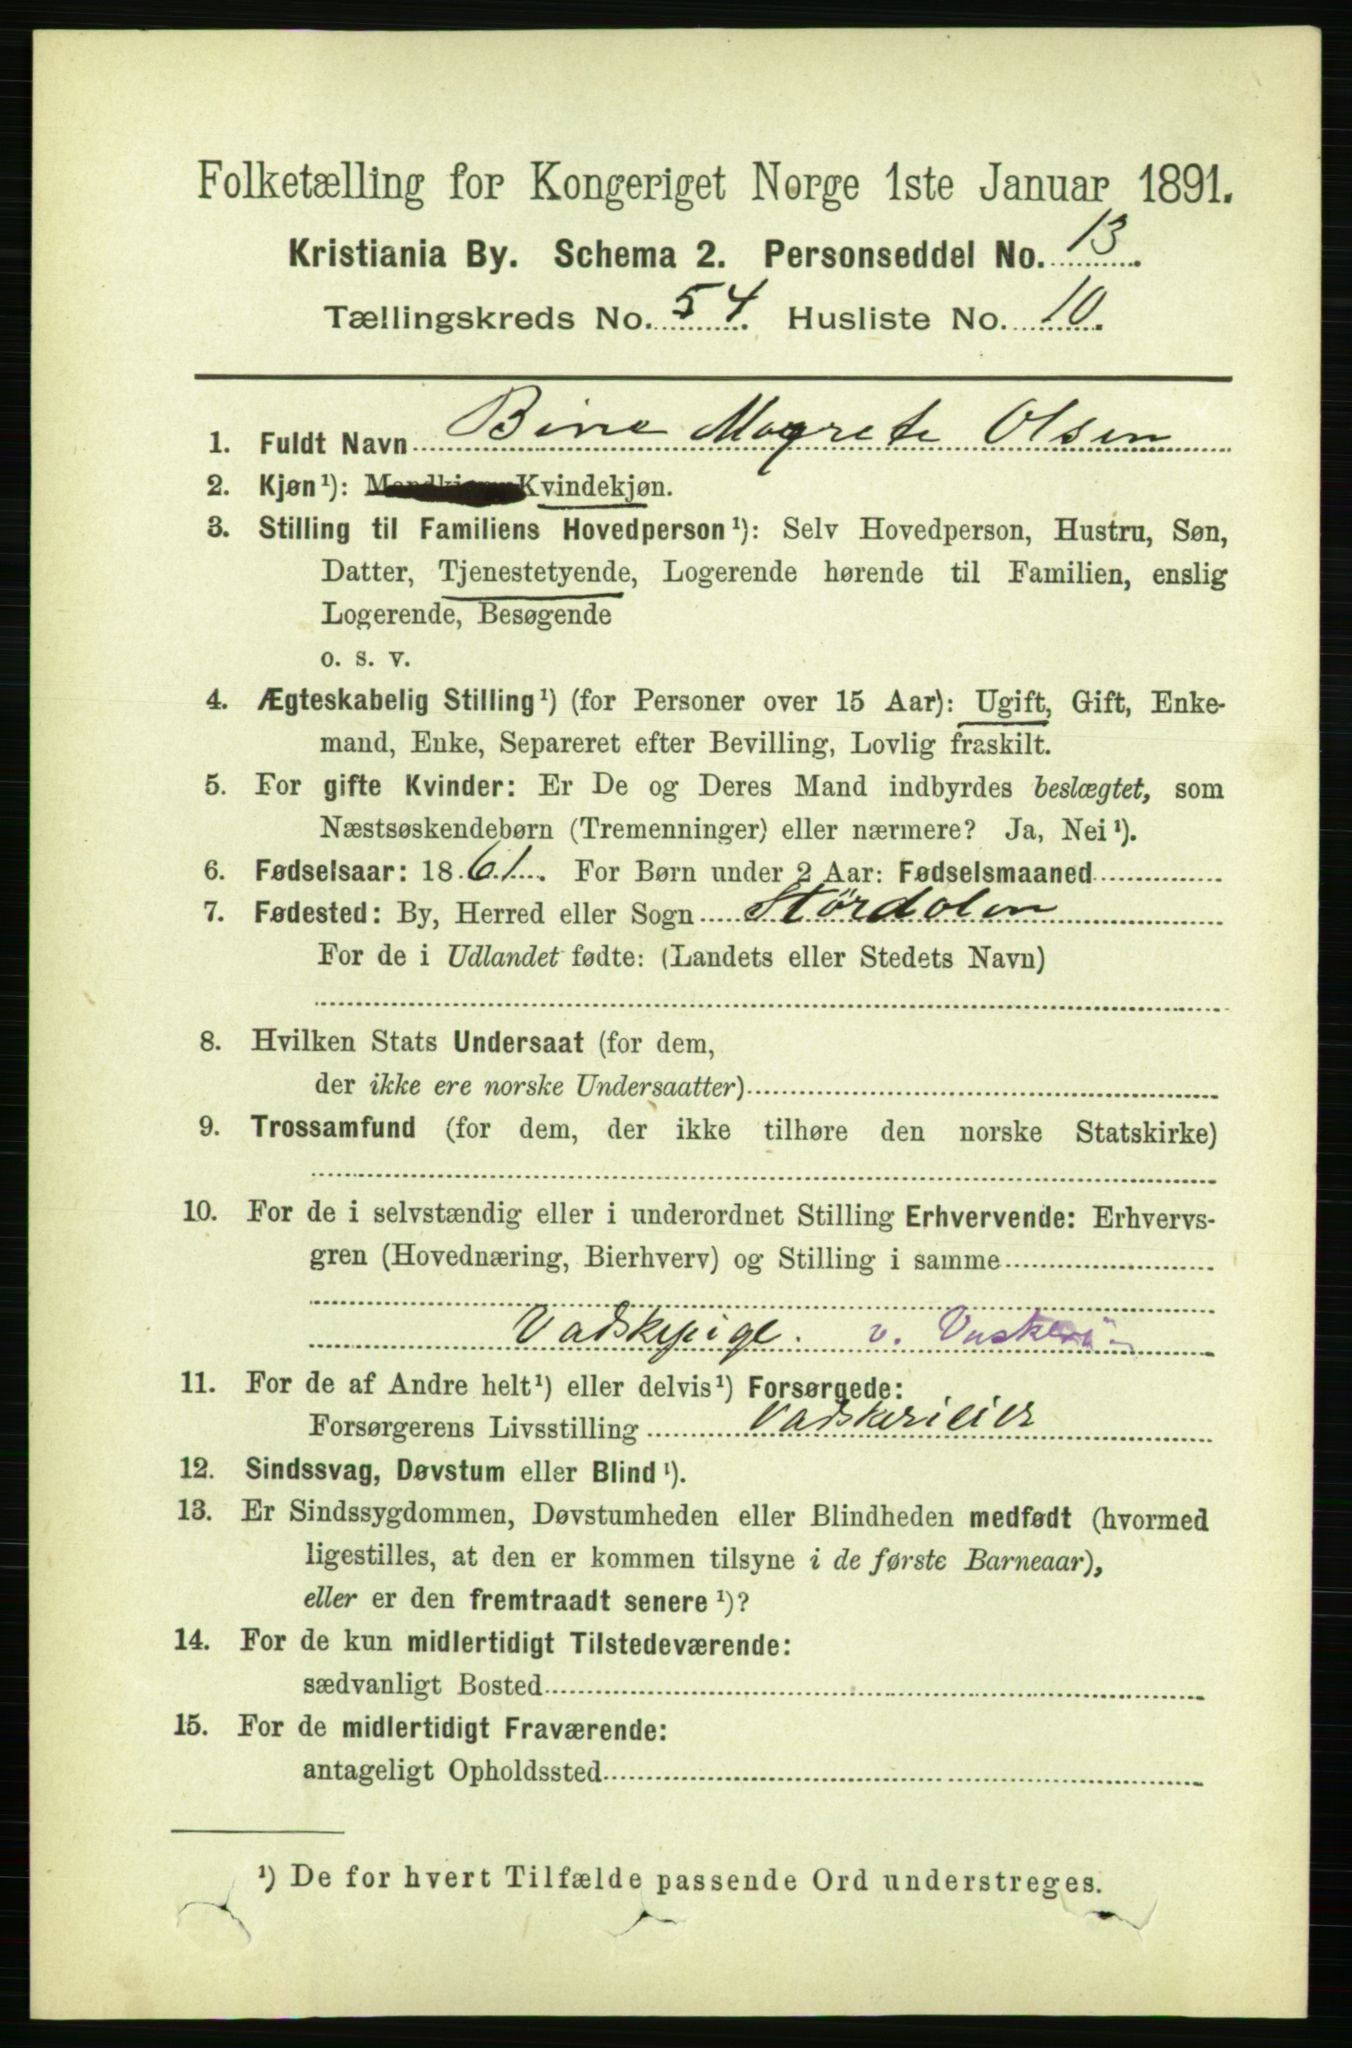 Folketælling for Kongeriget Norge 1ste Januar 1891.
Kristiania By. Schema 2. Personseddel No. 13.
Tællingskreds No. 54. Husliste No. 10.
1. Fuldt Navn Bine Magrete Olsen
2. Kjøn¹): Mandkjøn, Kvindekjøn.
3. Stilling til Familiens Hovedperson¹): Selv Hovedperson, Hustru, Søn,
Datter, Tjenestetyende, Logerende hørende til Familien, enslig
Logerende, Besøgende
o. s. v.
4. Ægteskabelig Stilling¹) (for Personer over 15 Aar): Ugift, Gift, Enke-
mand, Enke, Separeret efter Bevilling, Lovlig fraskilt.
5. For gifte Kvinder: Er De og Deres Mand indbyrdes beslægtet, som
Næstsøskendebørn (Tremenninger) eller nærmere? Ja, Nei¹).
6. Fødselsaar: 1861. For Børn under 2 Aar: Fødselsmaaned
7. Fødested: By, Herred eller Sogn Stördolen
For de i Udlandet fødte: (Landets eller Stedets Navn)
8. Hvilken Stats Undersaat (for dem,
der ikke ere norske Undersaatter)
9. Trossamfund (for dem, der ikke tilhøre den norske Statskirke)
10. For de i selvstændig eller i underordnet Stilling Erhvervende: Erhvervs-
gren (Hovednæring, Bierhverv) og Stilling i samme
Vadskepige. v. Vaskeri
11. For de af Andre helt¹) eller delvis¹) Forsørgede:
Forsørgerens Livsstilling Vadskerieier
12. Sindssvag, Døvstum eller Blind¹).
13. Er Sindssygdommen, Døvstumheden eller Blindheden medfødt (hvormed
ligestilles, at den er kommen tilsyne i de første Barneaar),
eller er den fremtraadt senere¹)?
14. For de kun midlertidigt Tilstedeværende:
sædvanligt Bosted
15. For de midlertidigt Fraværende:
antageligt Opholdssted
¹) De for hvert Tilfælde passende Ord understreges.